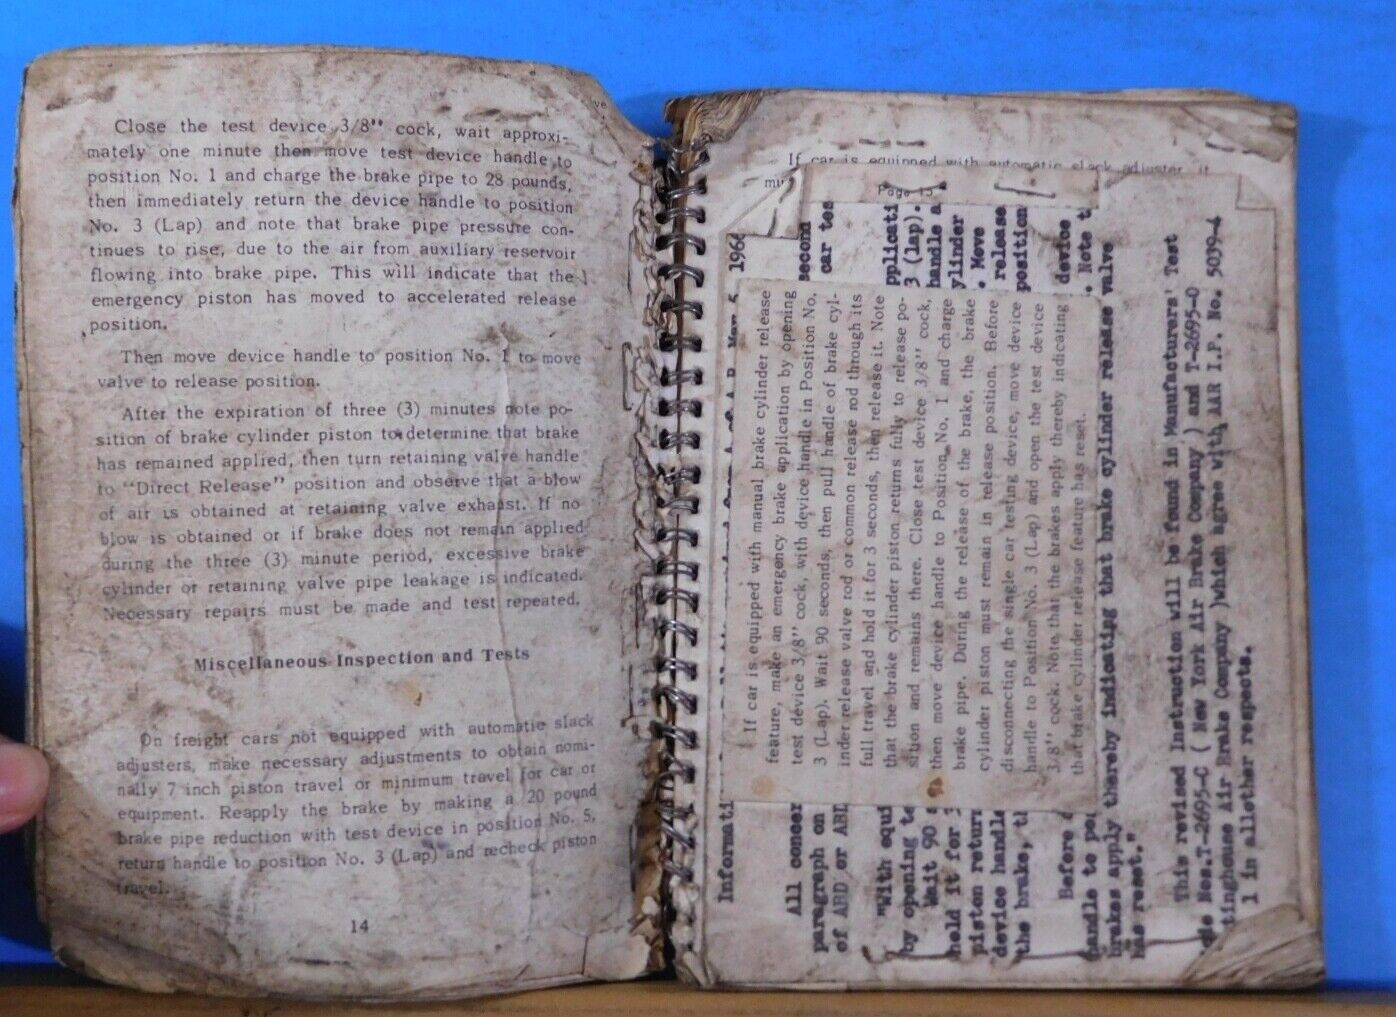 Close the test device 3/8" cock, wait approxi-
mately one minute then move test device handle to
position No. 1 and charge the brake pipe to 28 pounds,
then immediately return the device handle to position
No. 3 (Lap) and note that brake pipe pressure con-
tinues to rise, due to the air from auxiliary reservoir
flowing into brake pipe. This will indicate that the
emergency piston has moved to accelerated release
position.
Then move device handle to position No. 1 to move
valve to release position.
After the expiration of three (3) minutes note po-
sition of brake cylinder piston to determine that brake
has remained applied, then turn retaining valve handle
to "Direct Release" position and observe that a blow
of air is obtained at retaining valve exhaust. If no
blow is obtained or if brake does not remain applied
during the three (3) minute period, excessive brake
cylinder or retaining valve pipe leakage is indicated.
Necessary repairs must be made and test repeated.
Miscellaneous Inspection and Tests
On freight cars not equipped with automatic slack
adjusters, make necessary adjustments to obtain nomi-
nally 7 inch piston travel or minimum travel for car or
equipment. Reapply the brake by making a 20 pound
brake pipe reduction with test device in position No. 5,
return handle to position No. 3 (Lap) and recheck piston
travel.
14
If car is equipped with automatic slack adjuster, it
Page
If car is equipped with manual brake cylinder release
feature, make an emergency brake application by opening
test device 3/8" cock, with device handle in Position No.
3 (Lap). Wait 90 seconds, then pull handle of brake cyl-
inder release valve rod or common release rod through its
full travel and hold it for 3 seconds, then release it. Note
that the brake cylinder piston returns fully to release po-
sition and remains there. Close test device 3/8" cock,
then move device handle to Position No. 1 and charge
brake pipe. During the release of the brake, the brake
cylinder piston must remain in release position. Before
disconnecting the single car testing device, move device
handle to Position No. 3 (Lap) and open the test device
3/8" cock. Note that the brakes apply thereby indicating
that brake cylinder release feature has reset.
Informati 1964
All concer second
paragraph on car tes
of ABD or ABL
"With equi pplicati
by opening te 3 (lap).
Wait 90 handle a
held it for 3 ylinder
piston retur . Move
device handle release
the brake, t position
Before device
handle to po . Note t
brakes apply thereby indicating that brake cylinder release valve
has reset."
This revised Instruction will be found in Manufacturers' Test
Nos.T-2695-C ( New York Air Brake Company ) and T-2695-0
tinghouse Air Brake Company )which agree with AAR I.P. No. 5039-4
1 in allother respects.